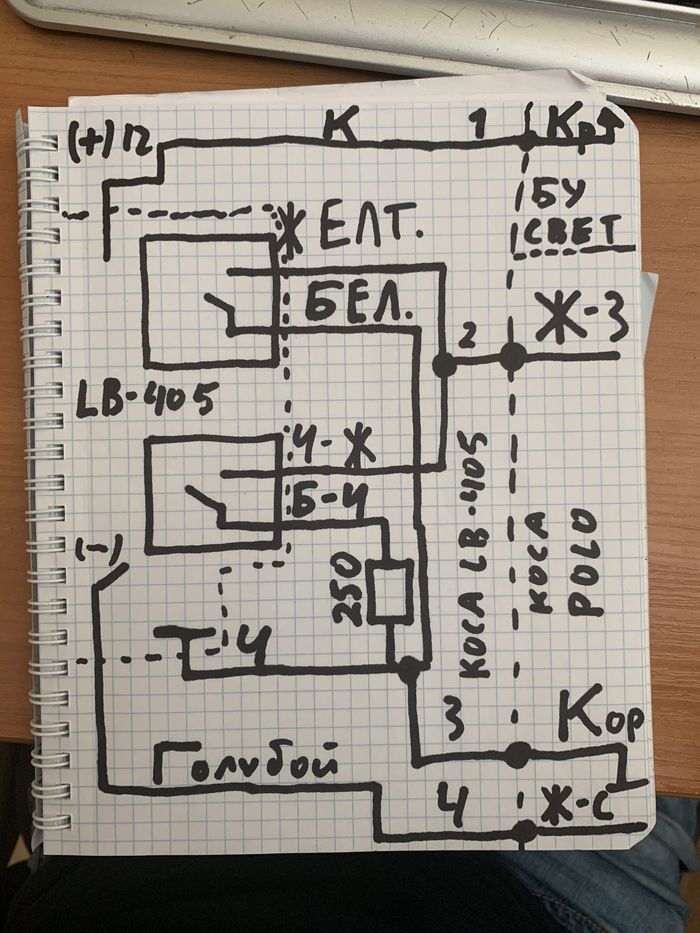 (+)12 К 1 Кр
БУ
СВЕТ
ЖЕЛТ.
БЕЛ.
2 Ж-З
LB-405
Ч-Ж
Б-Ч
КОСА LB-405
КОСА
POLO
(-)
250
Ч
3 Кор
Голубой
4 Ж-С